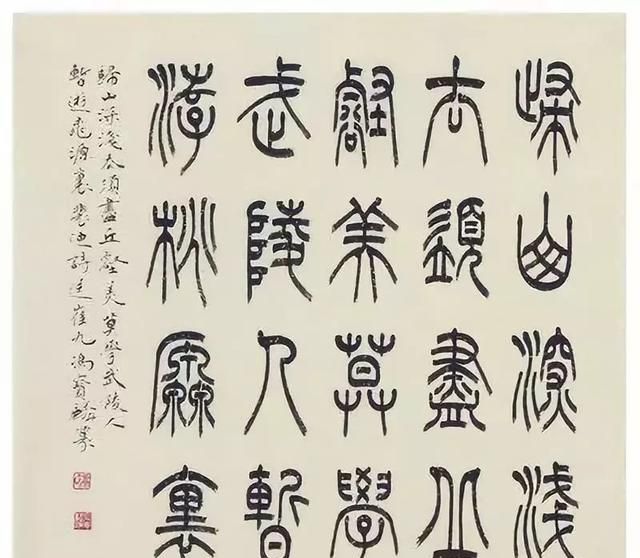 歸山深淺
去須盡丘
壑美莫學
武陵人暫
游桃源裏
歸山深淺去須盡丘壑美莫學武陵人
暫遊桃源裏裴迪詩送崔九馮寶麟篆